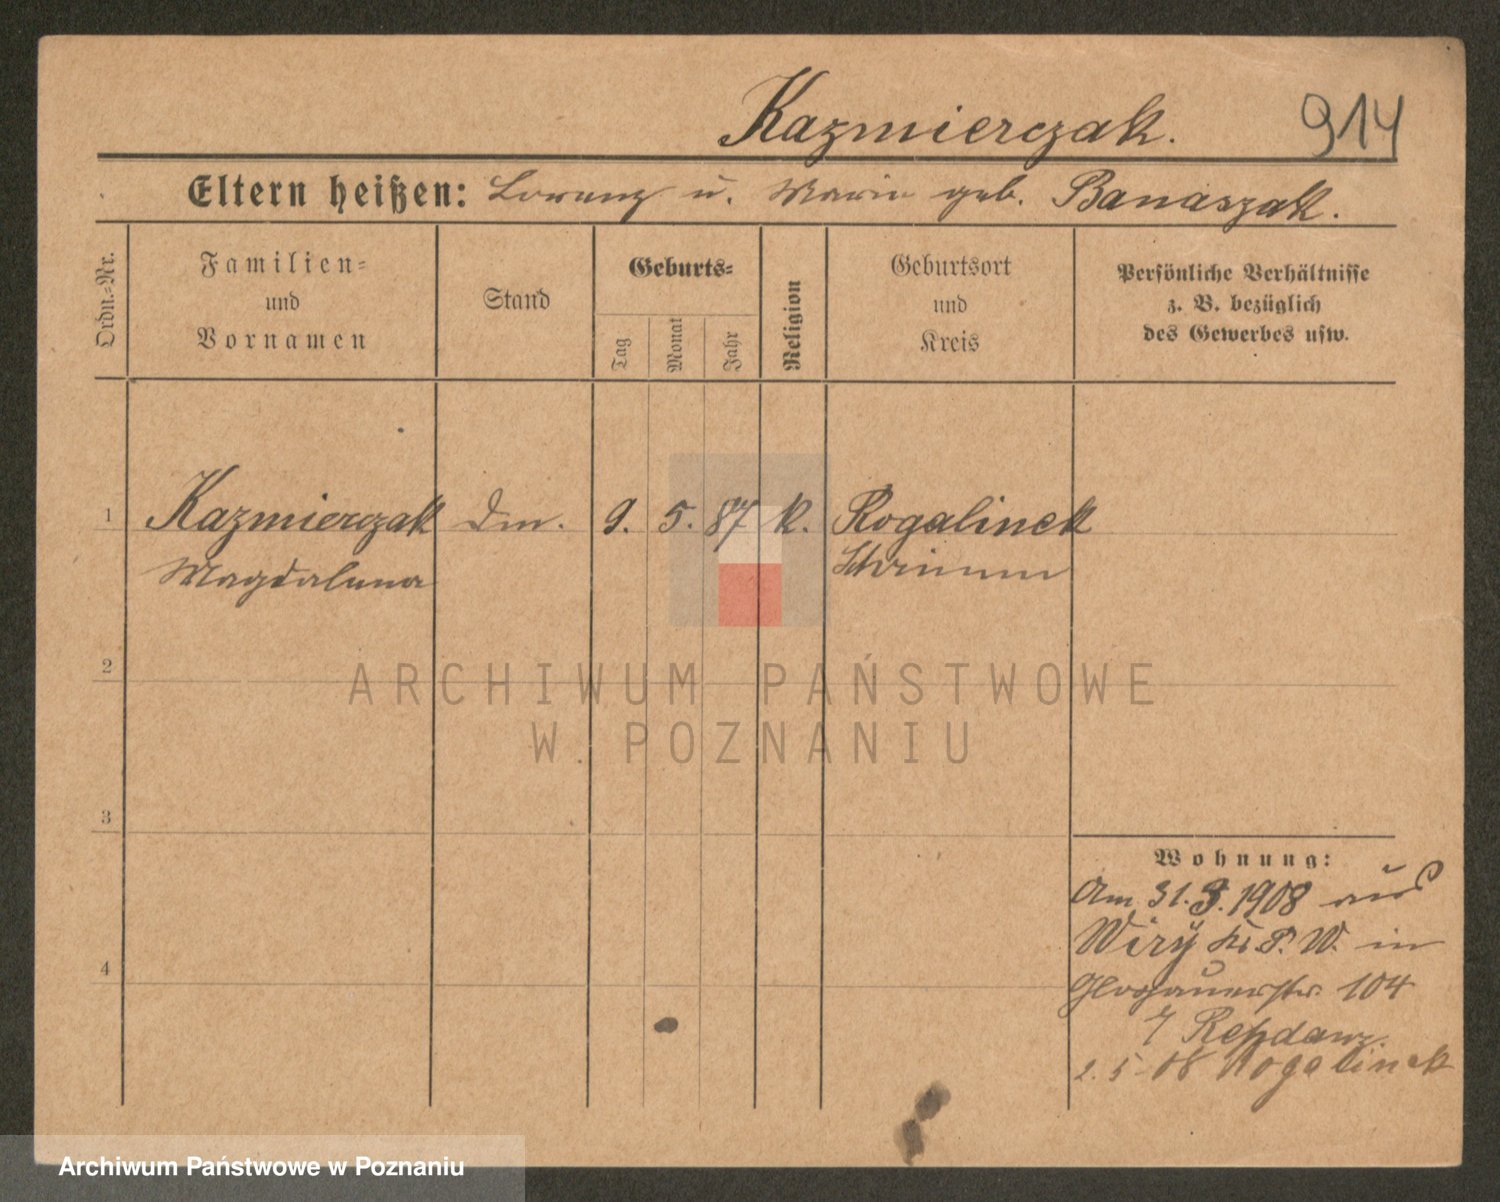 Kazmierczak.
914
Eltern heißen: Lorenz u. Marie geb. Banaszak.
Ordn.-Nr.
Familien-
und
Vornamen
Stand
Geburts-
Tag
Monat
Jahr
Religion
Geburtsort
und
Kreis
Persönliche Verhältnisse
z. B. bezüglich
des Gewerbes usw.
1 Kazmierczak Dm. 9. 5. 87 k. Rogalinek
Magdalena Schrimm
2
ARCHIWUM PAŃSTWOWE
W POZNANIU
3
Wohnung:
Am 31.3.1908 aus
Wiry Kr. P. W. in
4
Glogauerstr. 104
Repdanz.
2. 5. 08 Rogalinek
Archiwum Państwowe w Poznaniu